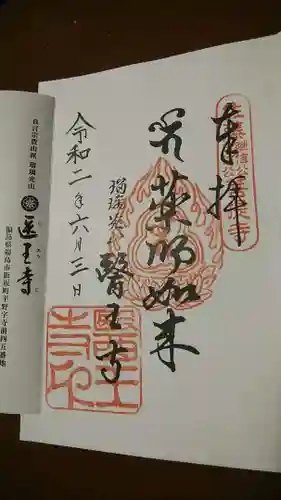 奉拝
薬師如来
瑠璃光山
醫王寺
醫王寺印
令和二年六月三日
真言宗豊山派 瑠璃光山
医王寺
いおうじ
福島県福島市飯坂町平野字寺前四五番地